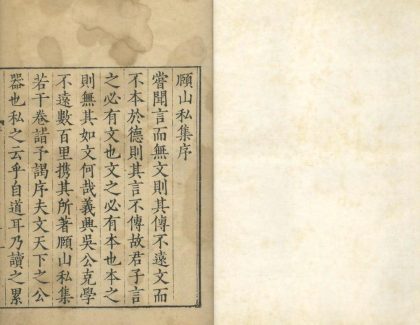 願山私集序
嘗聞言而無文則其傳不遠文而
不本於德則其言不傳故君子言
之必有文也文之必有本也本之
則無其如文何哉義興吳公克學
不遠數百里携其所著願山私集
若干卷請予謁序夫文天下之公
器也私之云乎自道耳乃讀之累